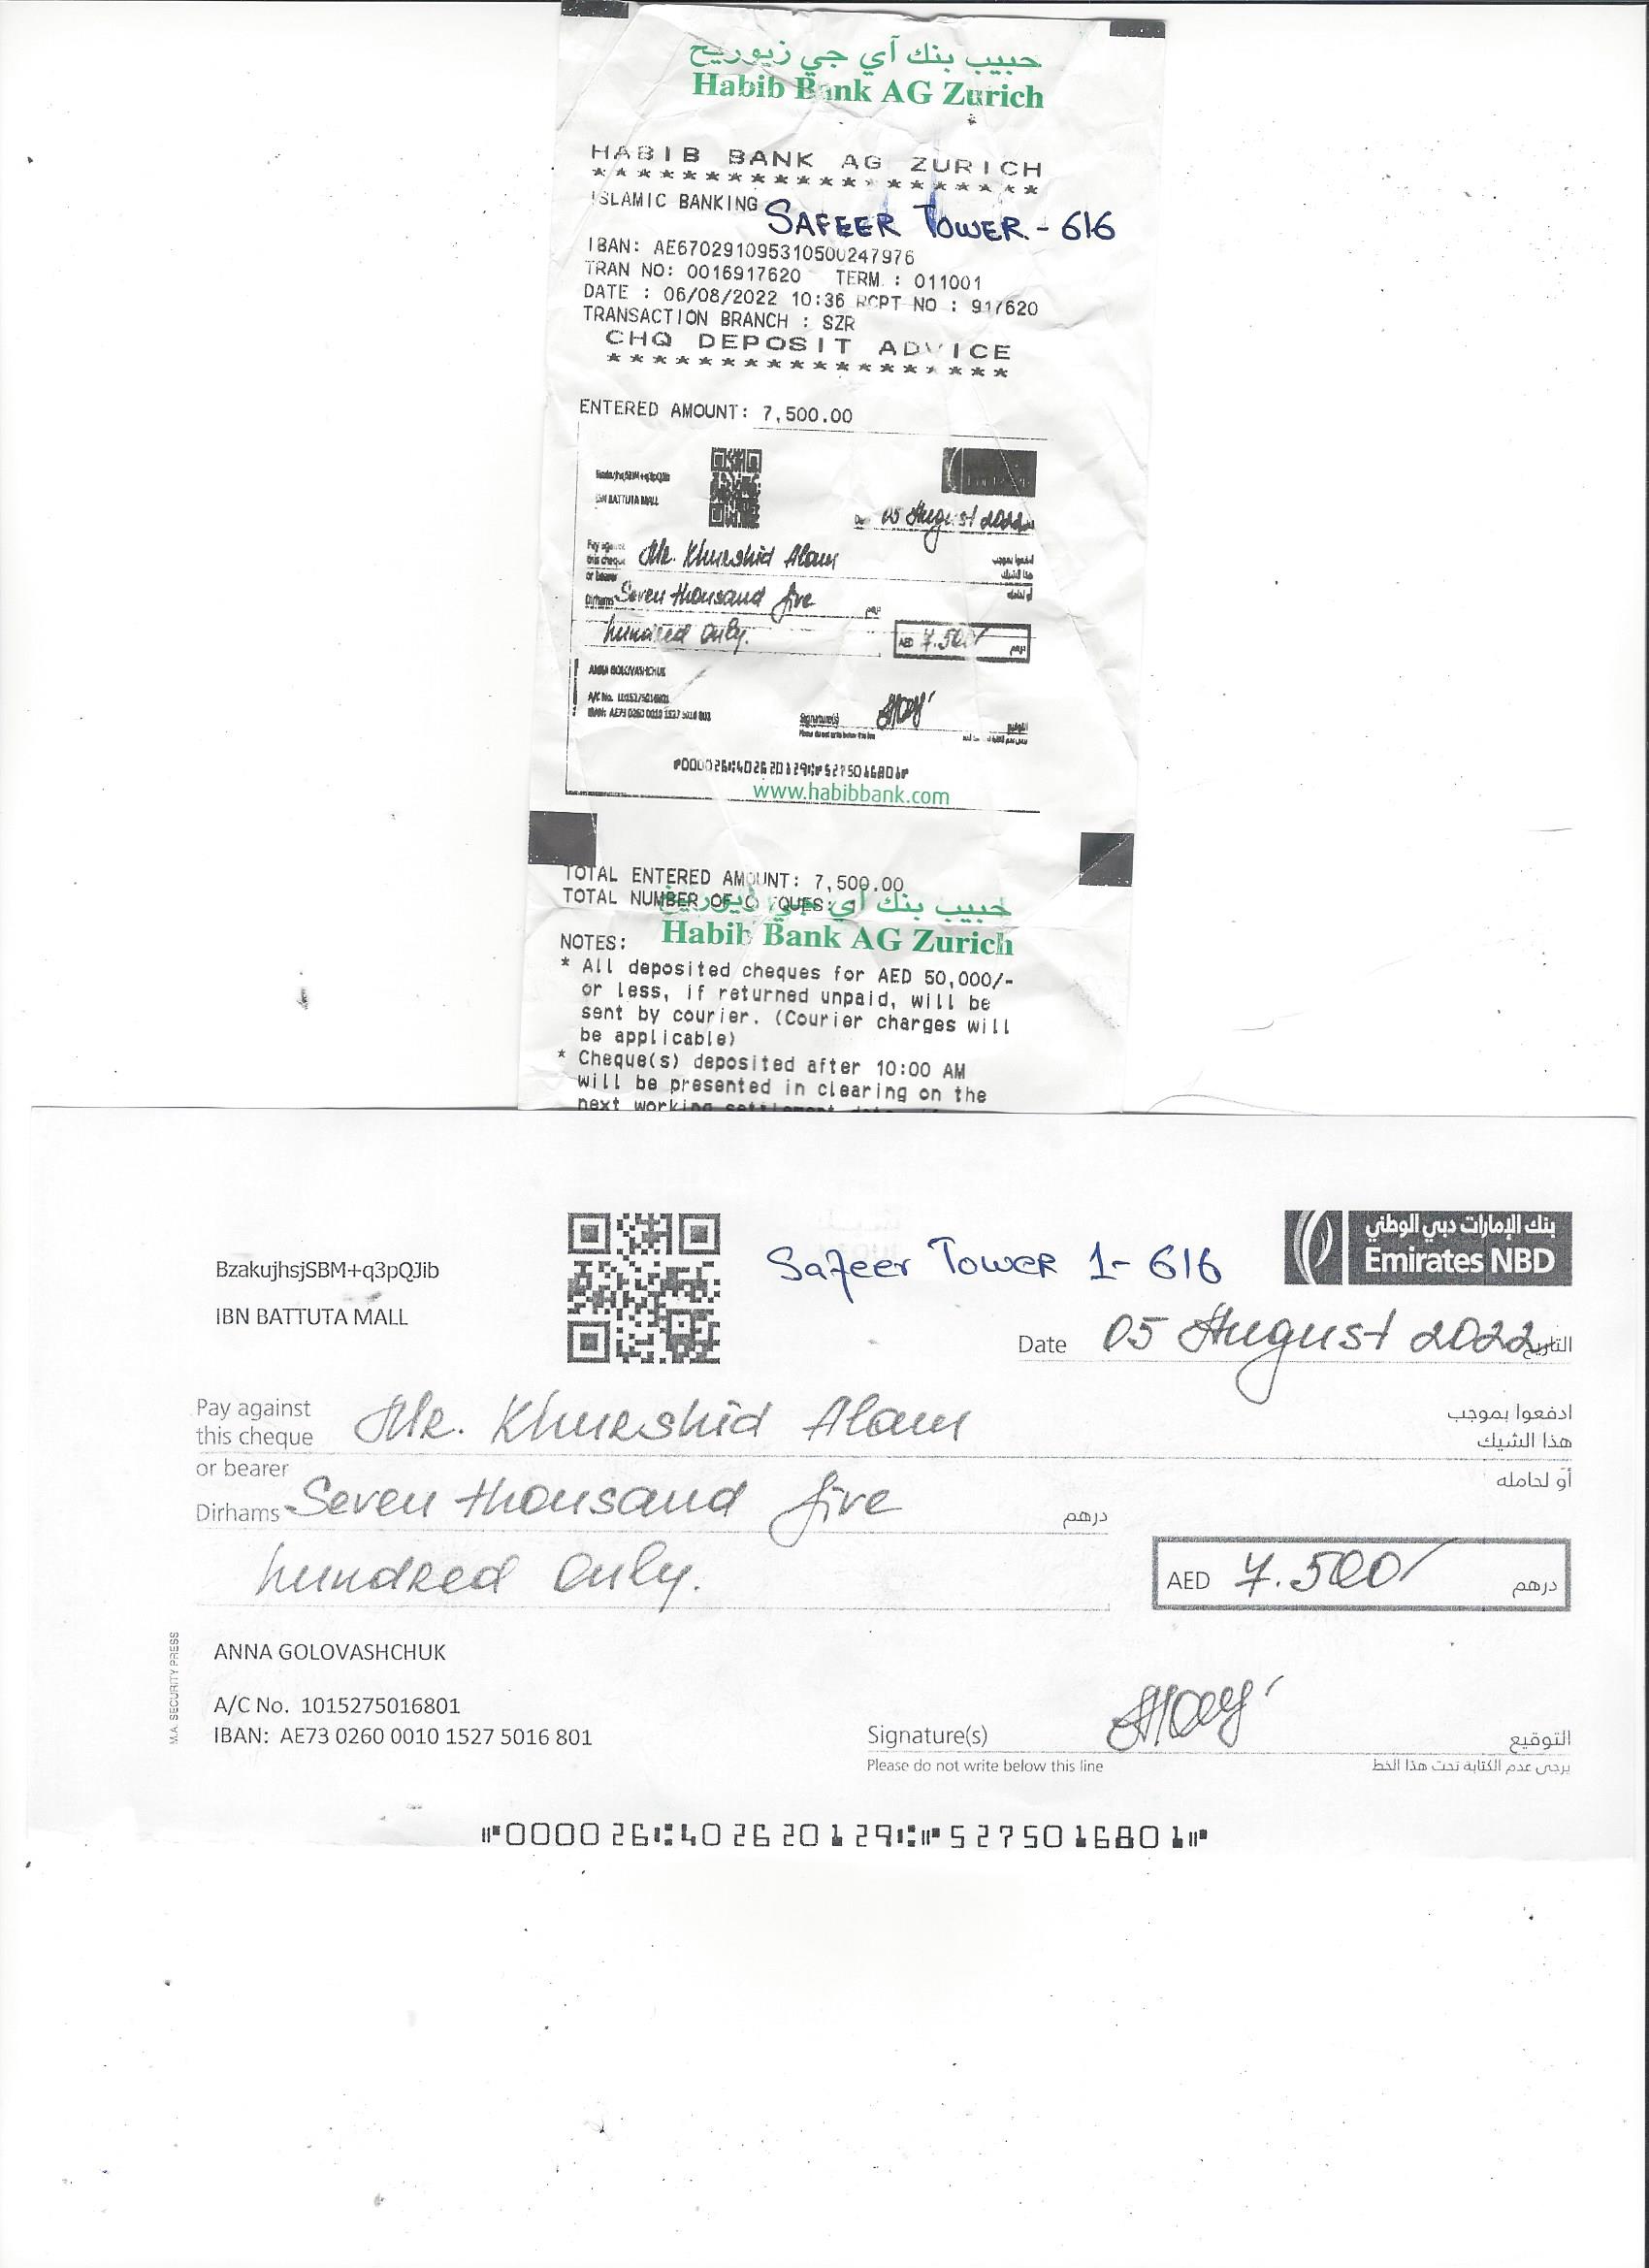 حبيب بنك آي جي زيوريخ
Habib Bank AG Zurich
HABIB BANK AG ZURICH
* * * * * * * * * * * * * * * * * * * *
ISLAMIC BANKING
SAFEER TOWER - 616
IBAN: AE670291095310500247976
TRAN NO: 0016917620 TERM.: 011001
DATE : 06/08/2022 10:36 RCPT NO : 917620
TRANSACTION BRANCH : SZR
CHQ DEPOSIT ADVICE
* * * * * * * * * * * * * * * * * *
ENTERED AMOUNT: 7,500.00
IBN BATTUTA MALL
05 August 2022
Pay against
this cheque
or bearer
Mr. Khurshid Alam
ادفعوا بموجب
هذا الشيك
أو لحامله
Dirhams Seven thousand five درهم
hundred only.
AED 7.500/ درهم
ANNA GOLOVASHCHUK
A/C No. 1015275016801
IBAN: AE73 0260 0010 1527 5016 801
Signature(s) التوقيع
Please do not write below this line
⑈000026⑆402620129⑆⑈5275016801⑈
www.habibbank.com
TOTAL ENTERED AMOUNT: 7,500.00
TOTAL NUMBER OF
حبيب بنك آي جي زيوريخ
Habib Bank AG Zurich
NOTES:
* All deposited cheques for AED 50,000/-
or less, if returned unpaid, will be
sent by courier. (Courier charges will
be applicable)
* Cheque(s) deposited after 10:00 AM
will be presented in clearing on the
next working
BzakujhsjSBM+q3pQJib
IBN BATTUTA MALL
Safeer Tower 1-616
بنك الإمارات دبي الوطني
Emirates NBD
Date 05 August 2022 التاريخ
Pay against
this cheque
or bearer
Mr. Khurshid Alam
ادفعوا بموجب
هذا الشيك
أو لحامله
Dirhams Seven thousand five درهم
hundred only.
AED 7.500/ درهم
M.A. SECURITY PRESS
ANNA GOLOVASHCHUK
A/C No. 1015275016801
IBAN: AE73 0260 0010 1527 5016 801
Signature(s) التوقيع
Please do not write below this line يرجى عدم الكتابة تحت هذا الخط
⑈000026⑆402620129⑆⑈5275016801⑈